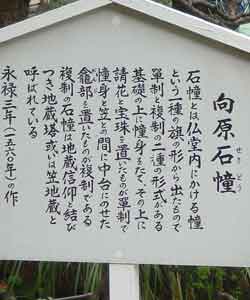 向原石幢
せきどう
石幢とは仏堂内にかける幢
という一種の旗の形から出たもので
単制と複制の二種の形式がある
基礎の上に幢身をたて、その上に
請花と宝珠を置いたものが単制で
幢身と笠との間に中台にのせた
龕部を置いたものが複制である
複制の石幢は地蔵信仰と結び
つき地蔵塔或いは笠地蔵と
呼ばれている
永禄三年(一五六〇年)の作